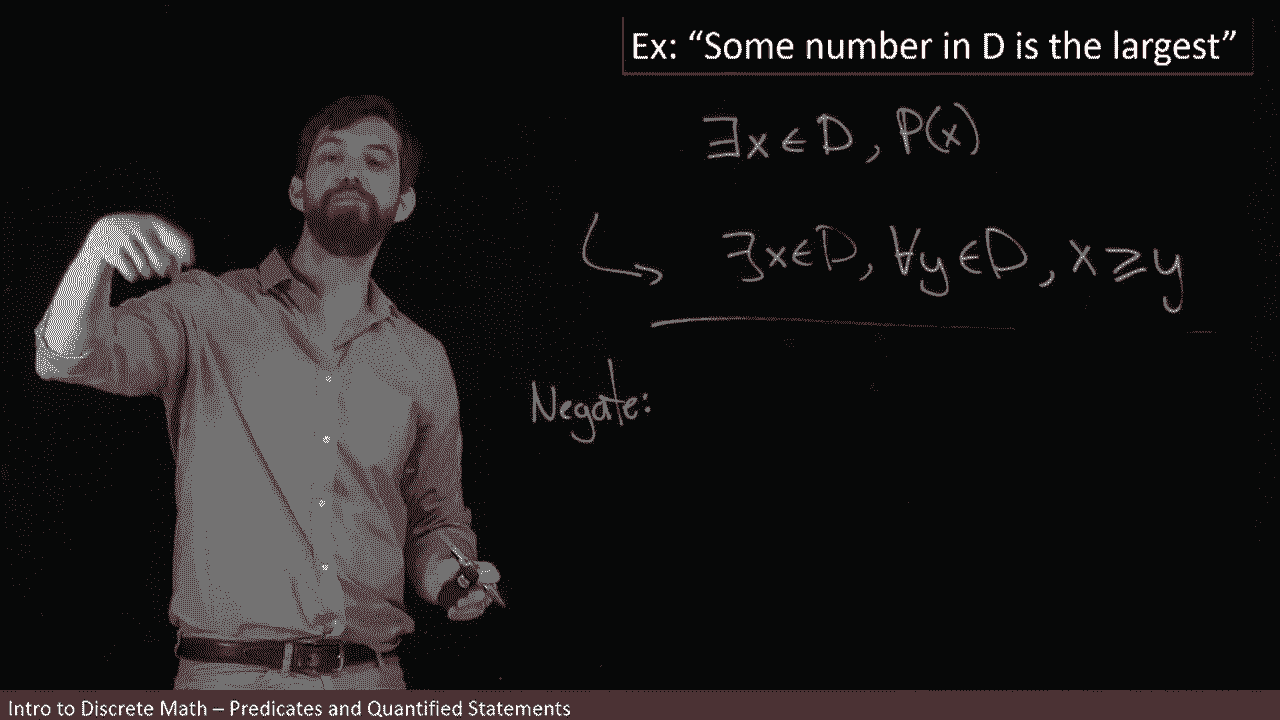 Ex: “Some number in D is the largest”
∃x ∈ D, P(x)
∃x∈D, ∀y ∈ D, x ≥ y
Negate:
Intro to Discrete Math – Predicates and Quantified Statements